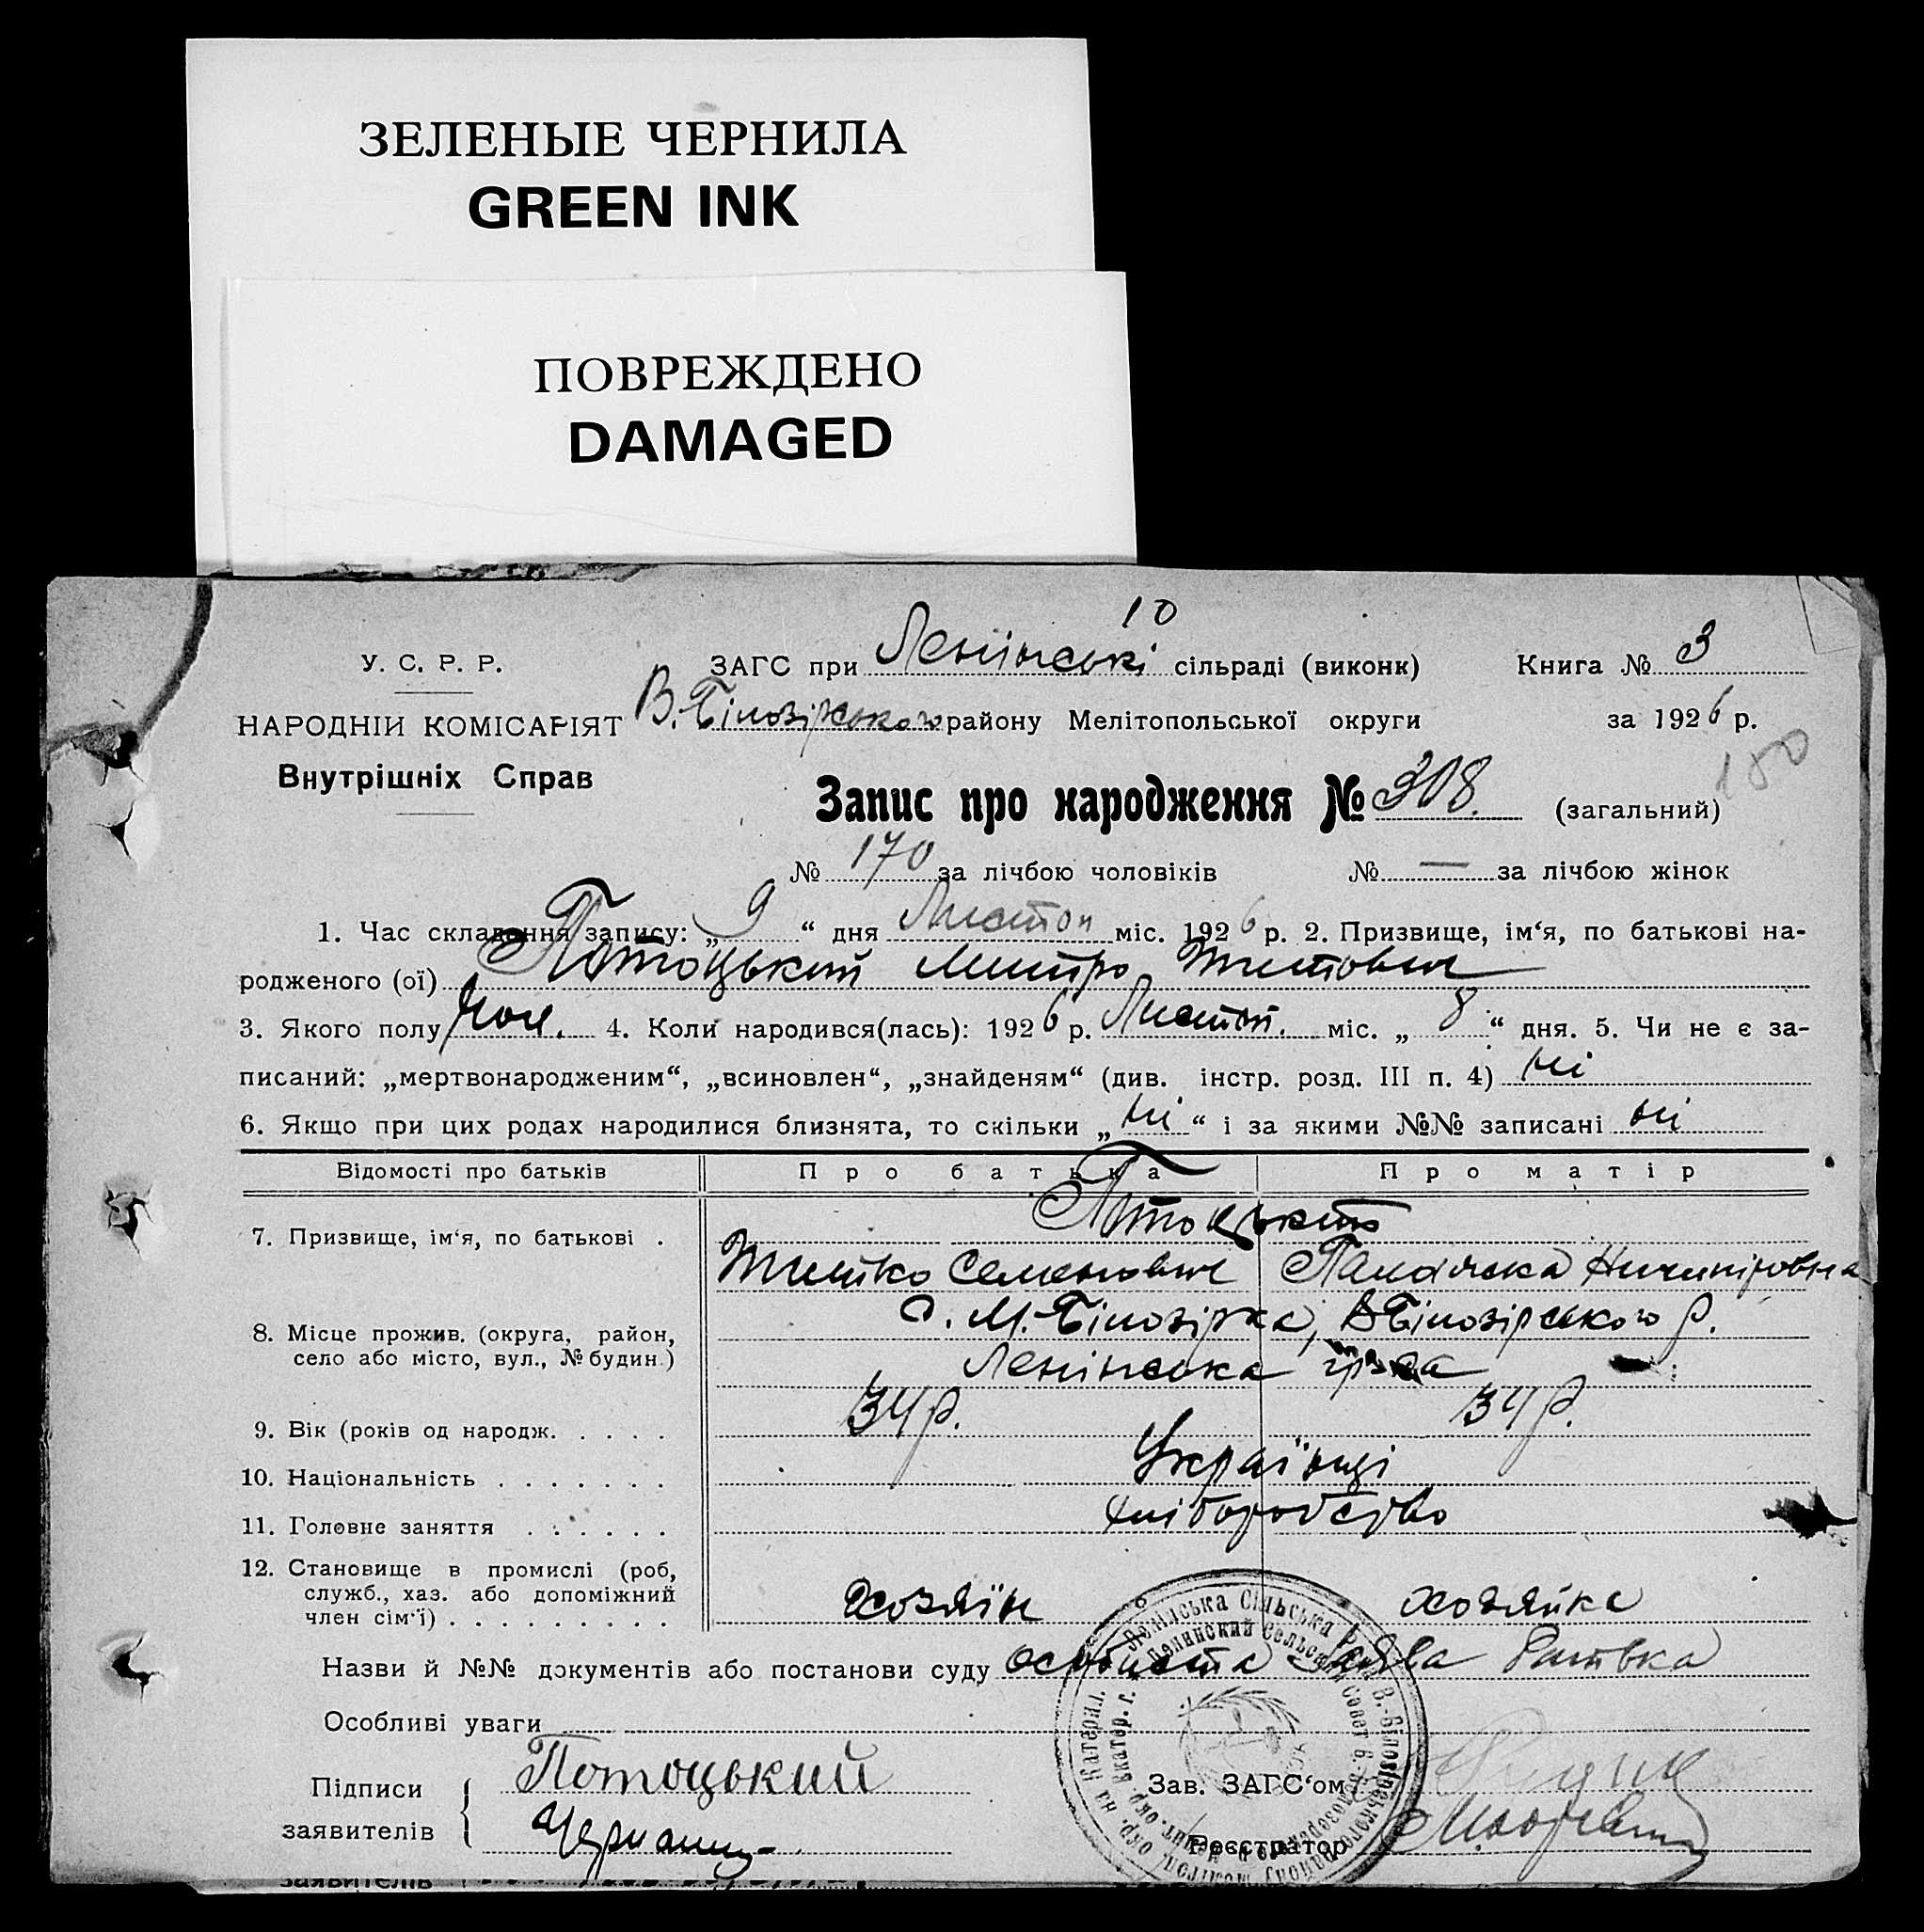 ЗЕЛЕНЫЕ ЧЕРНИЛА
GREEN INK
ПОВРЕЖДЕНО
DAMAGED
10
У. С. Р. Р.
ЗАГС при Ленінські сільраді (виконк) Книга № 3
В. Білозірського району Мелітопольської округи за 1926 р.
НАРОДНІЙ КОМІСАРІЯТ
Внутрішніх Справ
180
Запис про народження № 308. (загальний)
№ 170 за лічбою чоловіків № — за лічбою жінок
1. Час складення запису: „9“ дня Листоп міс. 1926 р. 2. Призвище, ім‘я, по батькові на-
родженого (ої) Потоцький Митро Титович
3. Якого полу чол. 4. Коли народився(лась): 1926 р. Листоп. міс. „8“ дня. 5. Чи не є за-
писаний: „мертвонародженим“, „всиновлен“, „знайденям“ (див. інстр. розд. III п. 4) ні
6. Якщо при цих родах народилися близнята, то скільки „ні“ і за якими №№ записані ні
Відомості про батьків Про батька Про матір
7. Призвище, ім‘я, по батькові .
Семенович Ничипіровна
8. Місце прожив. (округа, район,
село або місто, вул., № будин.)
с. М. Білозірка, В Білозірського р.
Ленінська
9. Вік (років од народж. . . . . 34 р. 34 р.
10. Національність . . . . . . . Українці
11. Головне заняття . . . . . . хліборобство
12. Становище в промислі (роб,
служб., хаз. або допоміжний
член сім‘ї) . . . . . . . . . хозяїн хозяйка
Назви й №№ документів або постанови суду особиста заява батька
Особливі уваги
Підписи
заявителів
Потоцький
Зав. ЗАГС‘ом
Реєстратор
Ленінська Сільська Рада В.-Білозірського
Ленинский Сельский Совет В.-Белозерского
заявителів